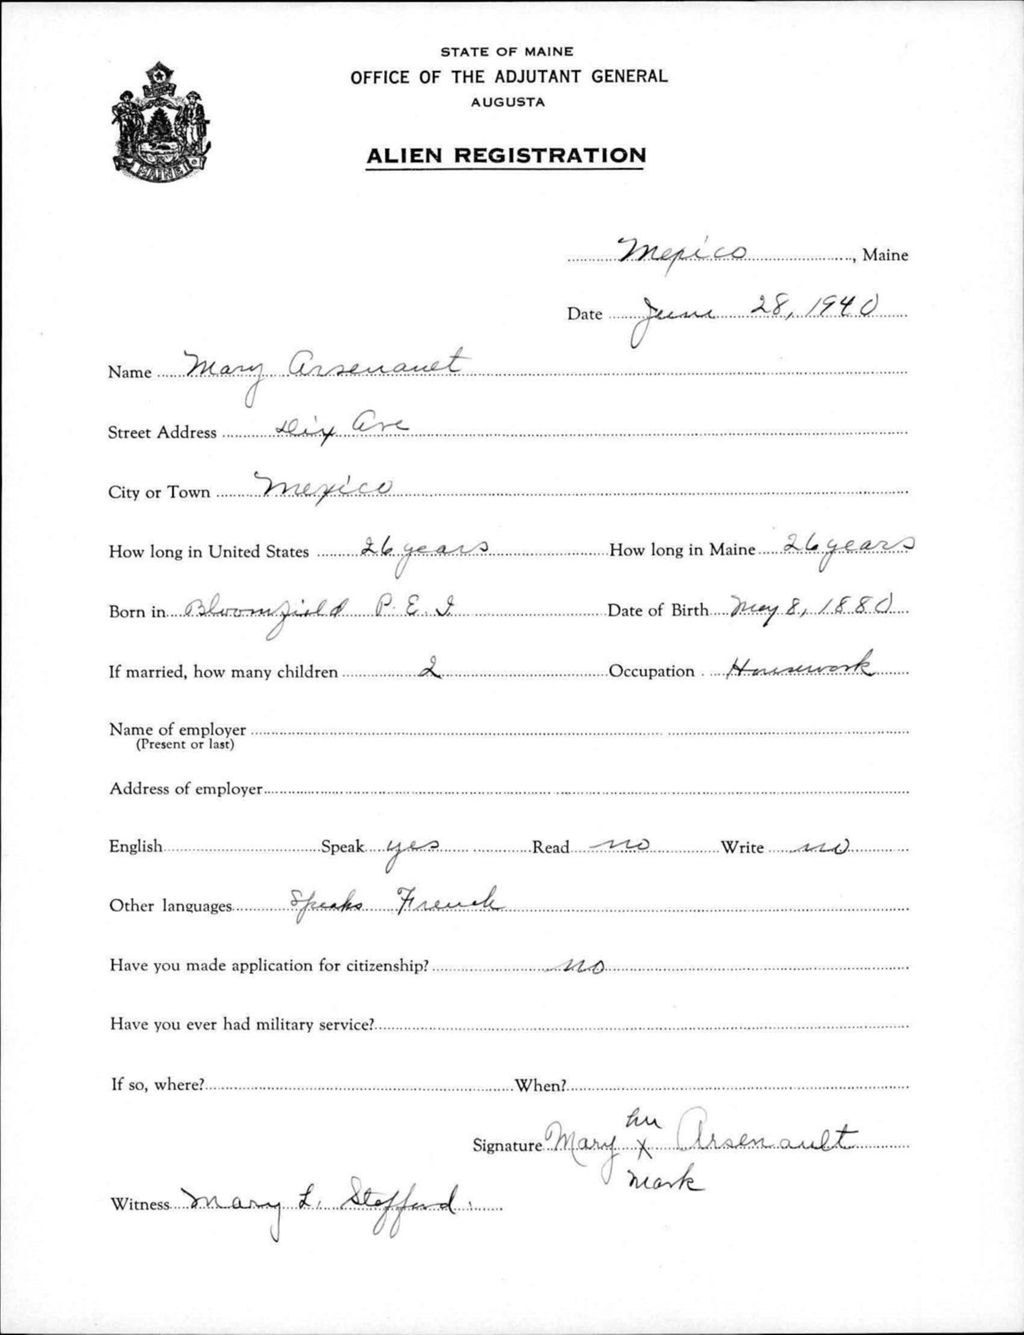 STATE OF MAINE
OFFICE OF THE ADJUTANT GENERAL
AUGUSTA
ALIEN REGISTRATION
MAINE
Mexico, Maine
Date June 28, 1940
Name Mary Arsenault
Street Address Dix Ave
City or Town Mexico
How long in United States 26 years How long in Maine 26 years
Born in Bloomfield P. E. I Date of Birth May 8, 1880
If married, how many children 2 Occupation Housework
Name of employer
(Present or last)
Address of employer
English Speak yes Read no Write no
Other languages Speaks French
Have you made application for citizenship? no
Have you ever had military service?
If so, where? When?
her
Signature Mary X Arsenault
mark
Witness Mary L. Stafford